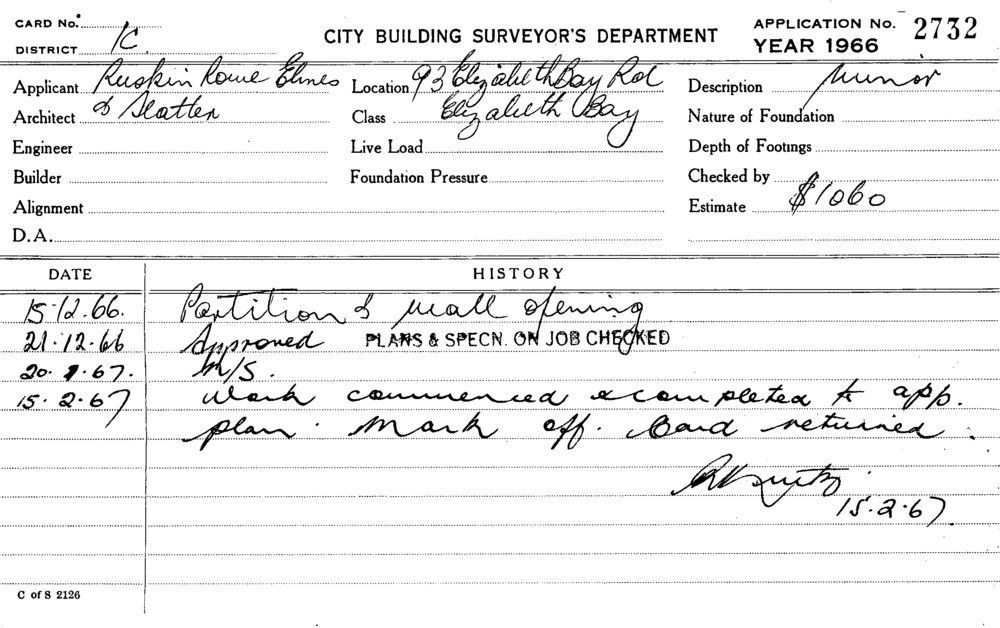 CARD No.
DISTRICT 1C.
CITY BUILDING SURVEYOR'S DEPARTMENT
APPLICATION No. 2732
YEAR 1966
Applicant Ruskin Rowe Elmes
Location 93 Elizabeth Bay Rd
Description Minor
Architect & Slatter
Class Elizabeth Bay
Nature of Foundation
Engineer
Live Load
Depth of Footings
Builder
Foundation Pressure
Checked by
Alignment
Estimate $1060
D.A.
DATE HISTORY
15.12.66. Partition & wall opening
21.12.66 Approved PLANS & SPECN. ON JOB CHECKED
20.1.67. N/S.
15.2.67 Work commenced & completed to app.
plan. Mark off. Card returned.
15.2.67.
C of S 2126